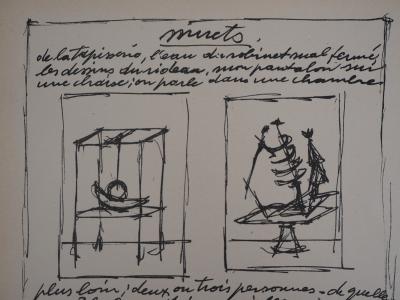 muets.
de la tapisserie, l'eau du robinet mal fermé,
les dessins du rideau, mon pantalon sur
une chaise; on parle dans une chambre
plus loin; deux ou trois personnes – de quelle